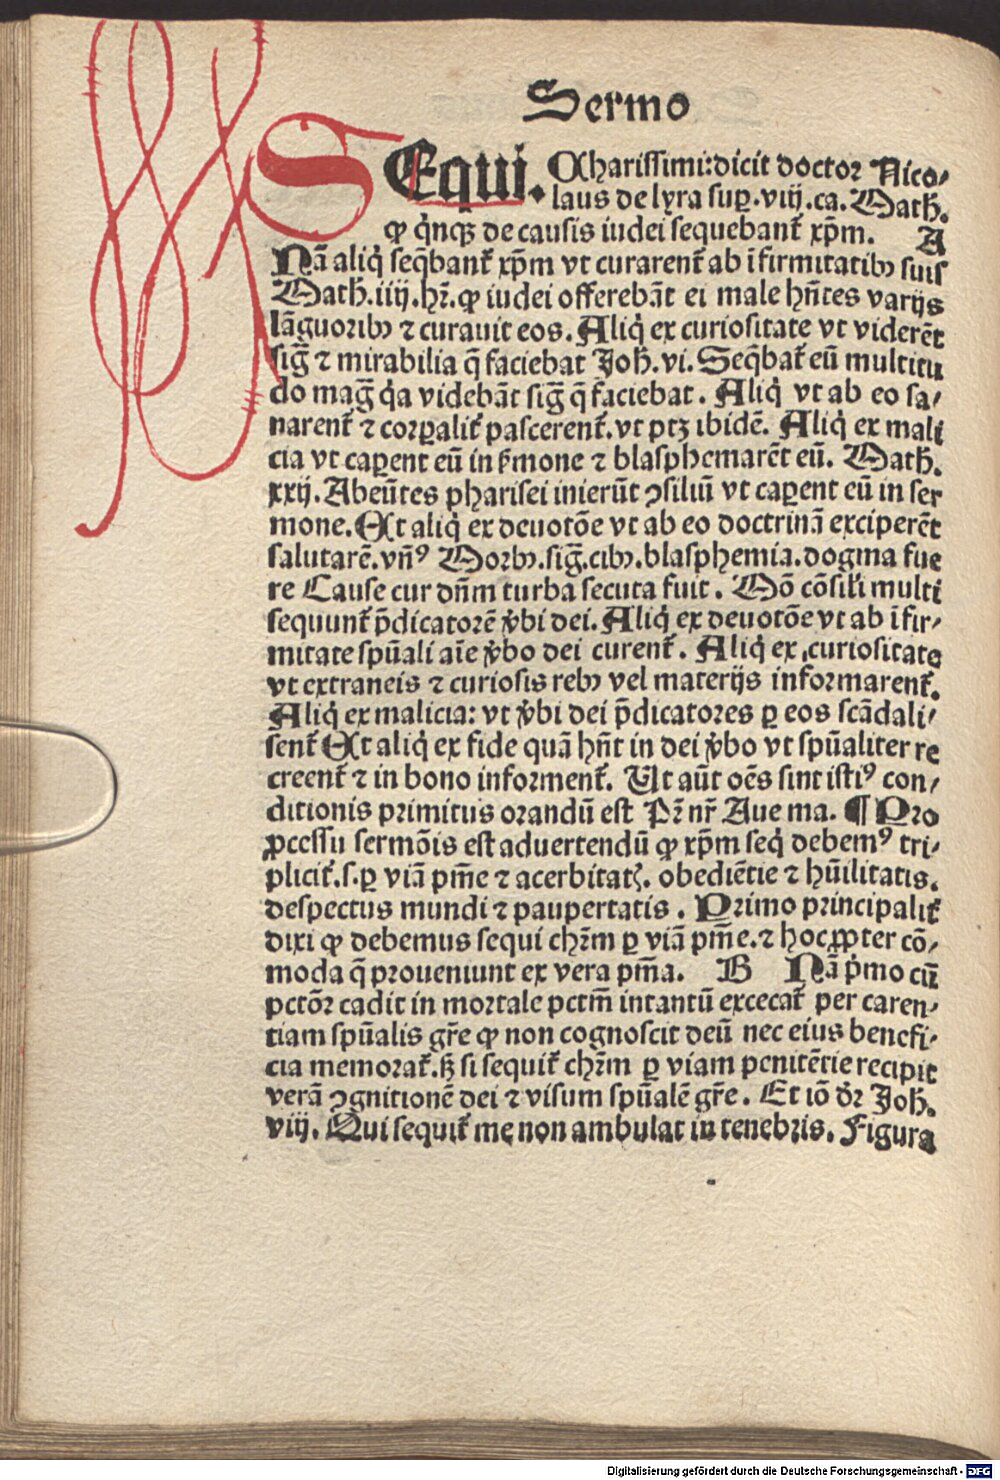 Sermo
SEqui. Charissimi: dicit doctor Nico/
laus de lyra sup̱.viij.ca. Math̄.
ꝙ q̇nqꝫ de causis iudei sequebant᷑ xp̄m. A
Nā aliq̇ seq̄bant᷑ xp̄m vt curarent᷑ ab īfirmitatibꝰ suis
Math̄.iiij.hr̄.ꝙ iudei offerebāt ei male hn̄tes varijs
lāguoribꝰ ⁊ curauit eos. Aliq̇ ex curiositate vt viderēt
siḡ ⁊ mirabilia q̄ faciebat Joh̄.vi. Seq̄bat᷑ eū multitu
do maḡ q̇a videbāt siḡ q̄ faciebat. Aliq̇ vt ab eo sa/
narent᷑ ⁊ corꝑalit᷑ pascerent᷑. vt ptꝫ ibidē. Aliq̇ ex mali
cia vt caꝑent eū in ẜmone ⁊ blasphemarēt eū. Math̄.
xxij. Abeūtes pharisei inierūt ꝯsiliū vt caꝑent eū in ser
mone. Et aliq̇ ex deuotōe vt ab eo doctrinā exciperēt
salutarē. vn̄ꝰ Morbꝰ.siḡ.cibꝰ.blasphemia.dogma fue
re Cause cur dn̄m turba secuta fuit. Mō cōsil̄i multi
sequunt᷑ p̄dicatorē v̓bi dei. Aliq̇ ex deuotōe vt ab īfir/
mitate spūali aīe v̓bo dei curent᷑. Aliq̇ ex curiositate
vt extraneis ⁊ curiosis rebꝰ vel materijs informarent᷑.
Aliq̇ ex malicia: vt v̓bi dei p̄dicatores ꝑ eos scādali/
sent᷑ Et aliq̇ ex fide quā hn̄t in dei v̓bo vt spūaliter re
creent᷑ ⁊ in bono informent᷑. Ut aūt oēs sint istiꝰ con/
ditionis primitus orandū est Pr̄ nr̄ Aue ma. ¶ Pro
ꝓcessu sermōis est aduertendū ꝙ xp̄m seq̇ debemꝰ tri/
plicit᷑.s.ꝑ viā pm̄e ⁊ acerbitatꝭ. obediētie ⁊ hūilitatis.
despectus mundi ⁊ paupertatis. Primo principalit᷑
dixi ꝙ debemus sequi chr̄m ꝑ viā pm̄e.⁊ hoc ꝓpter cō/
moda q̄ proueniunt ex vera pm̄a. B Nā p̓mo cū
pctōr cadit in mortale pctm̄ intantū excecat᷑ per caren/
tiam spūalis gr̄e ꝙ non cognoscit deū nec eius benefi/
cia memorat᷑. sꝫ si sequit᷑ chr̄m ꝑ viam penitētie recipit
verā ꝯgnitionē dei ⁊ visum spūalē gr̄e. Et iō dr̄ Joh̄.
viij. Qui sequit᷑ me non ambulat in tenebris. Figura
Digitalisierung gefördert durch die Deutsche Forschungsgemeinschaft - DFG